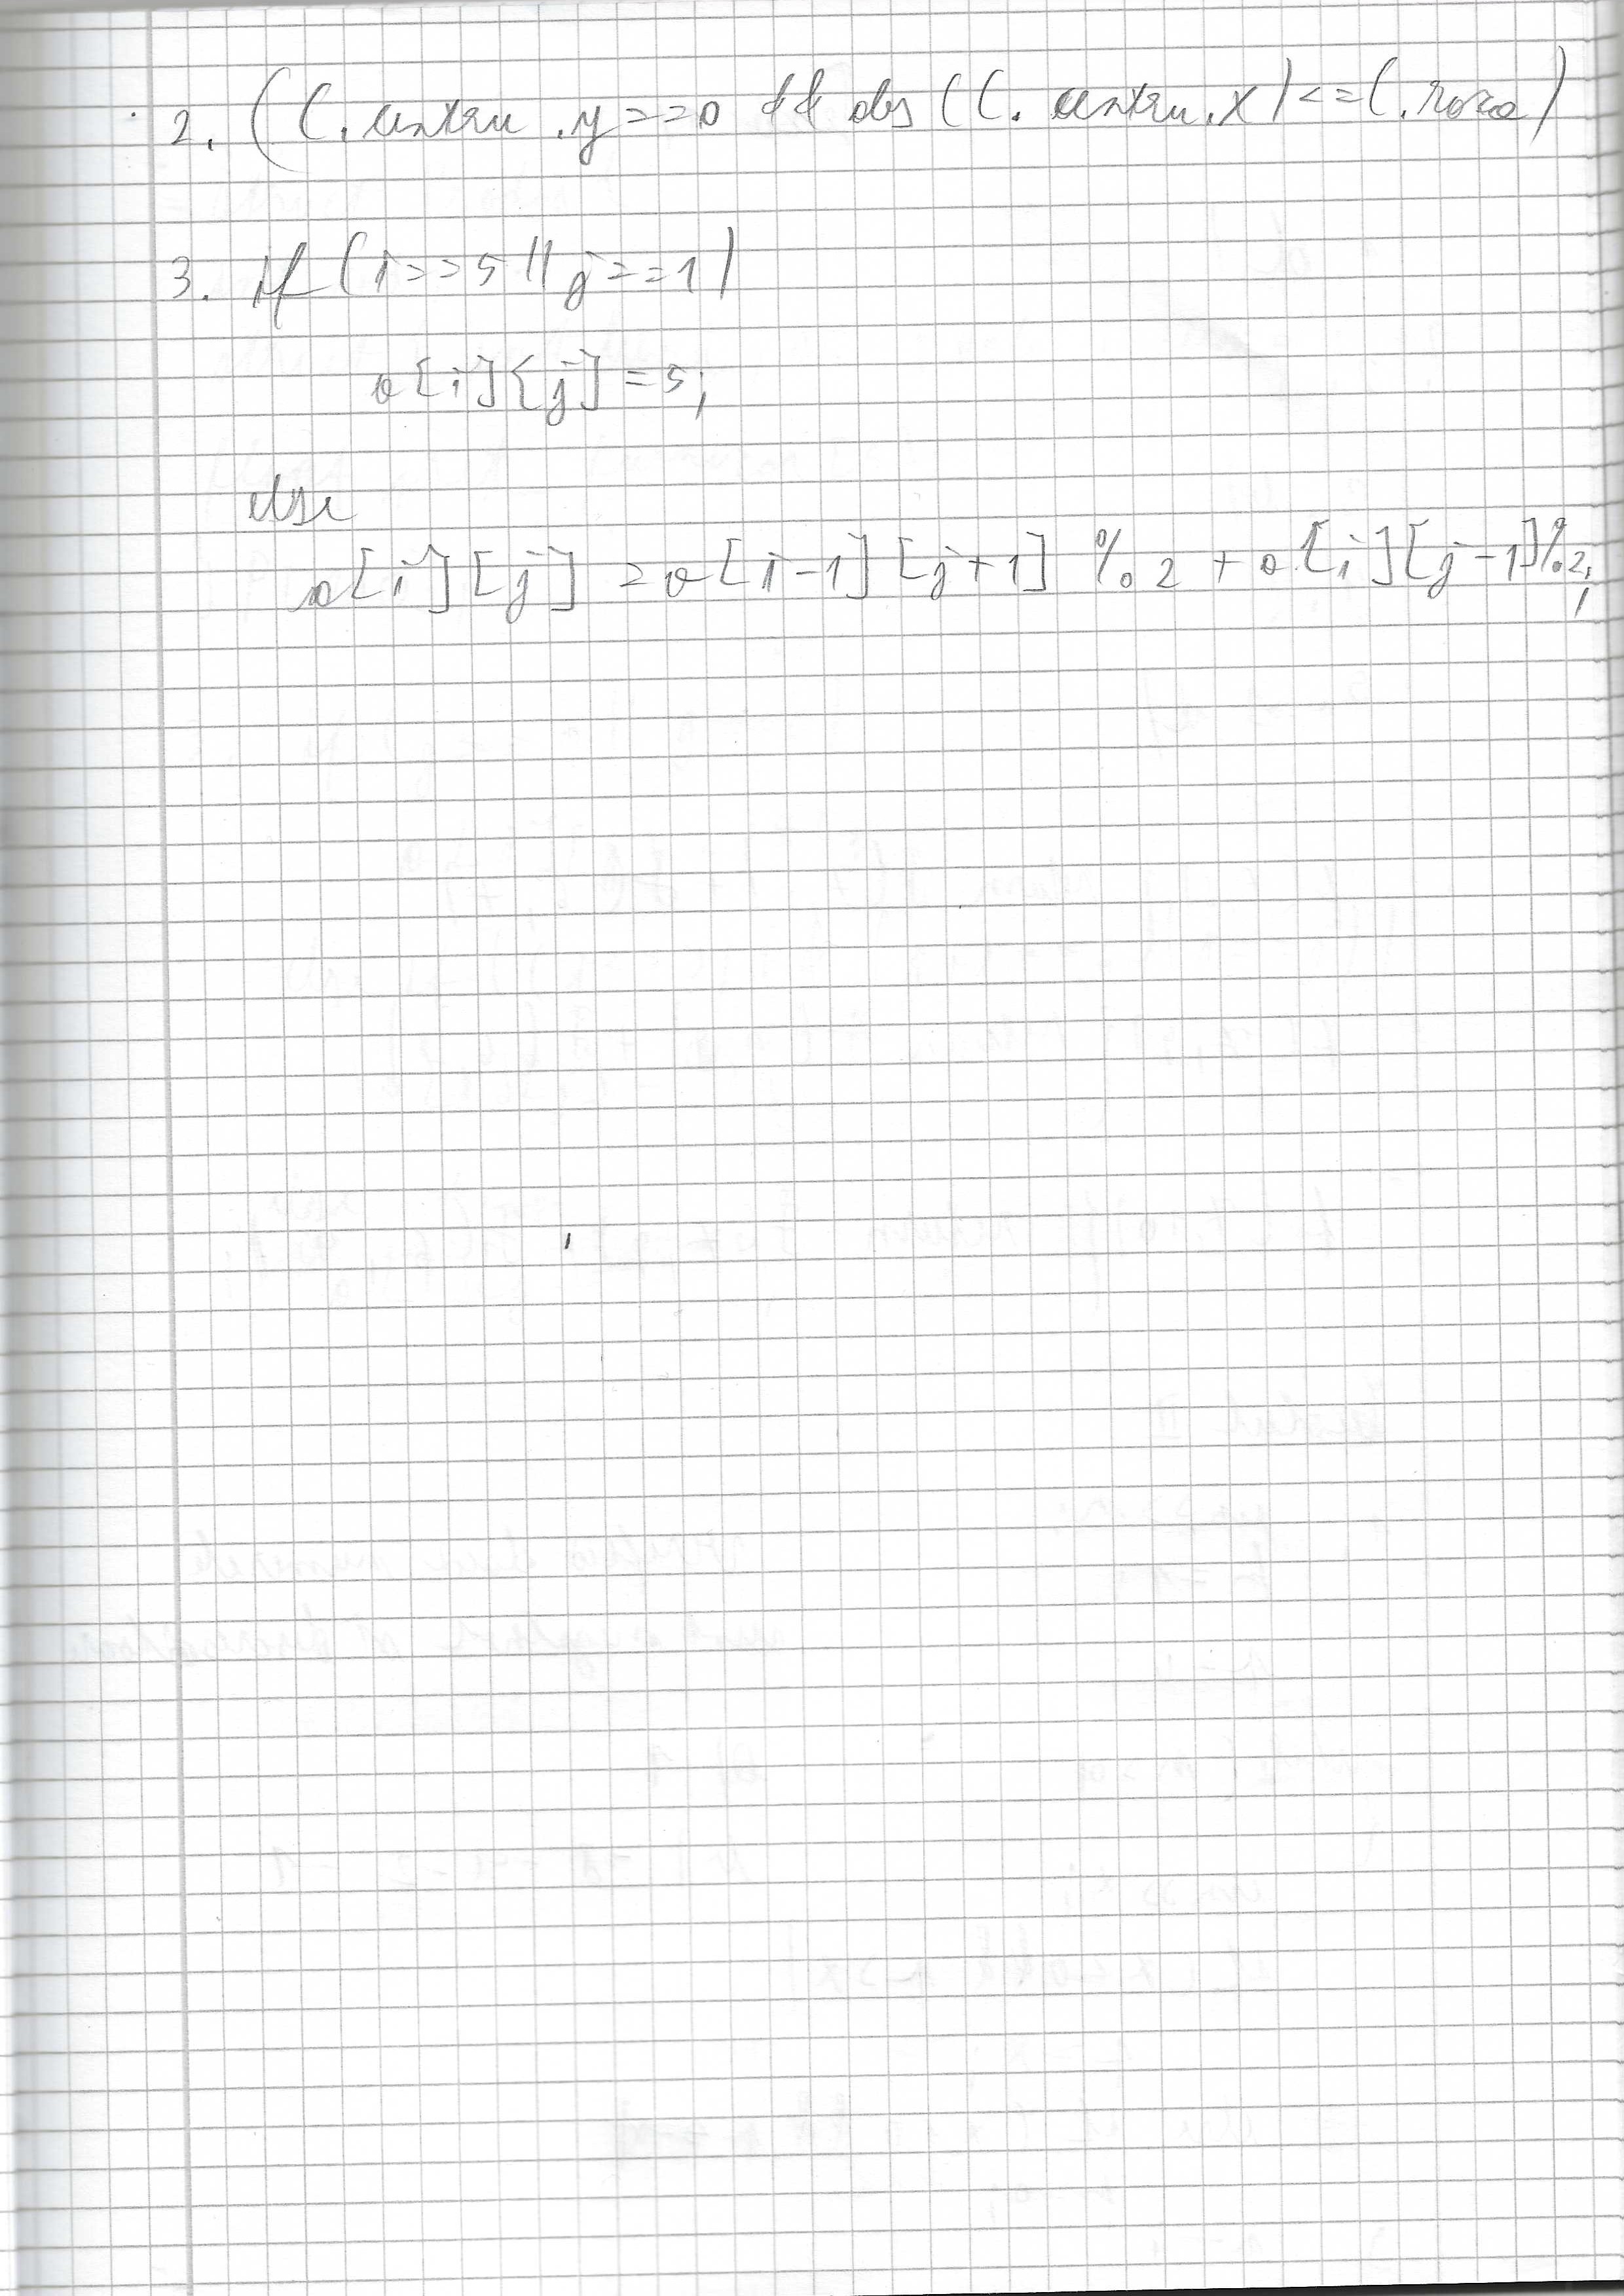 2. (C.centru.y==0 && abs(C.centru.x)<=C.raza)
3. if(i==5||j==1)
a[i][j]=5;
else
a[i][j]=a[i-1][j+1]%2+a[i][j-1]%2;